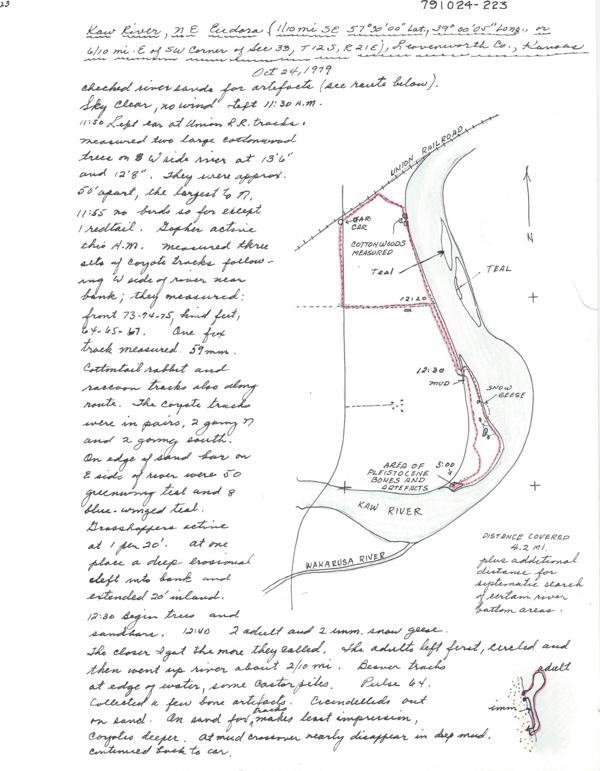 23
791024-223
Kaw River, NE Eudora (1/10 mi SE 57°30'00" Lat., 39°00'05" Long., or
6/10 mi. E of SW Corner of Sec 33, T12S, R21E), Leavenworth Co., Kansas
Oct 24, 1979
checked river sands for artefacts (see route below).
Sky clear, no wind. Left 11:30 A.M.
11:50 Left car at Union R.R. tracks.
measured two large cottonwood
trees on W side river at 13'6"
and 12'8". They were approx.
50' apart, the largest to N.
11:55 no birds so far except
1 redtail. Gopher active
this A.M. measured three
sets of coyote tracks follow-
ing W side of river near
bank; they measured:
front 73-74-75, hind feet,
64-65-67. One fox
track measured 59 mm.
Cottontail rabbit and
raccoon tracks also along
route. The coyote tracks
were in pairs, 2 going N
and 2 going south.
On edge of sand bar on
E side of river were 50
greenwing teal and 8
blue-winged teal.
Grasshoppers active
at 1 per 20'. At one
place a deep erosional
cleft into bank and
extended 20' inland.
12:30 Begin trees and
sandbars. 12:40 2 adult and 2 imm. snow geese.
The closer I got the more they called. The adults left first, circled and
then went up river about 2/10 mi. Beaver tracks
at edge of water, some castor piles. Pulse 64.
Collected a few bone artifacts. Cicindellids out
on sand. On sand fox tracks makes least impression,
coyotes deeper. At mud crossover nearly disappear in deep mud.
Continued back to car.
UNION RAILROAD
CAR
COTTONWOODS
MEASURED
TEAL
TEAL
N
12:20
12:30
MUD
SNOW
GEESE
AREA OF
PLEISTOCENE
BONES AND
ARTEFACTS
3:00
KAW RIVER
WAKARUSA RIVER
DISTANCE COVERED
4.2 MI.
plus additional
distance for
systematic search
of certain river
bottom areas.
adult
imm